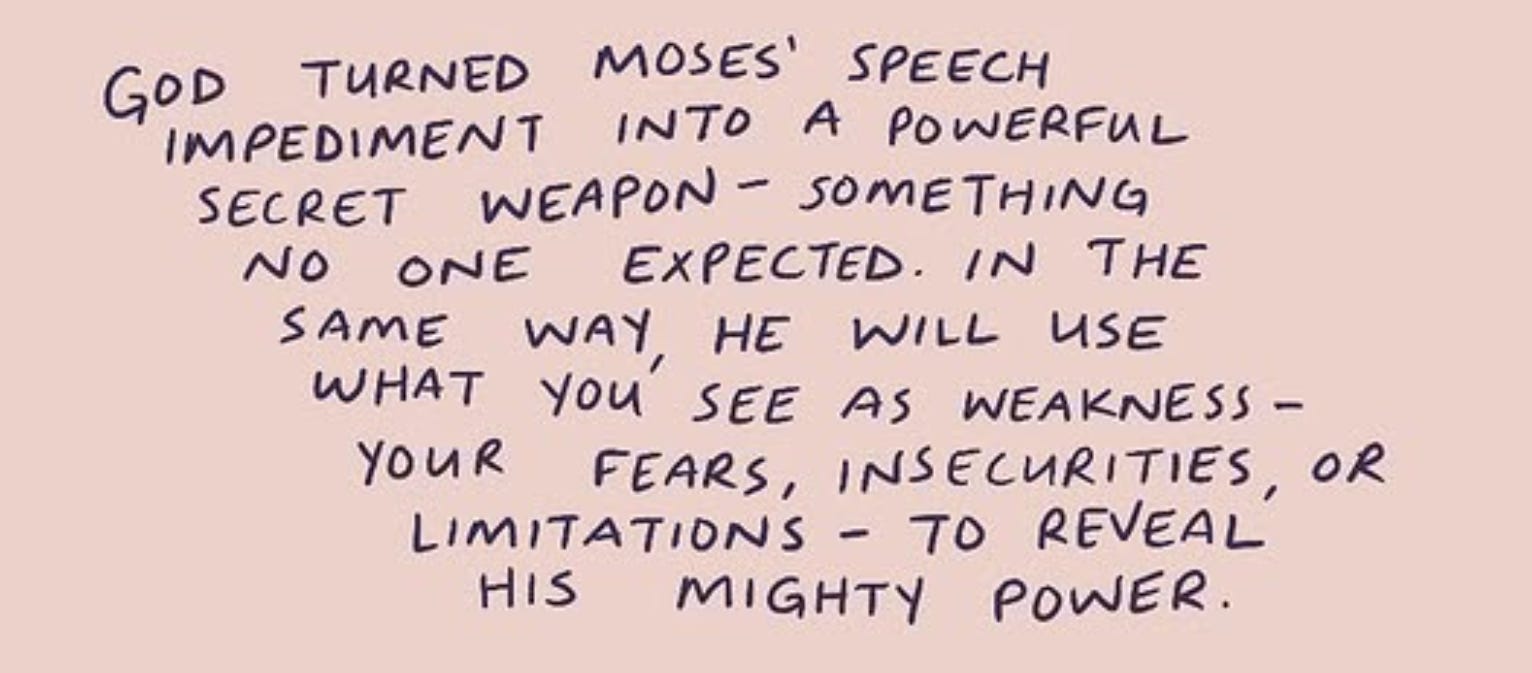 GOD TURNED MOSES' SPEECH
IMPEDIMENT INTO A POWERFUL
SECRET WEAPON - SOMETHING
NO ONE EXPECTED. IN THE
SAME WAY, HE WILL USE
WHAT YOU SEE AS WEAKNESS -
YOUR FEARS, INSECURITIES, OR
LIMITATIONS - TO REVEAL
HIS MIGHTY POWER.